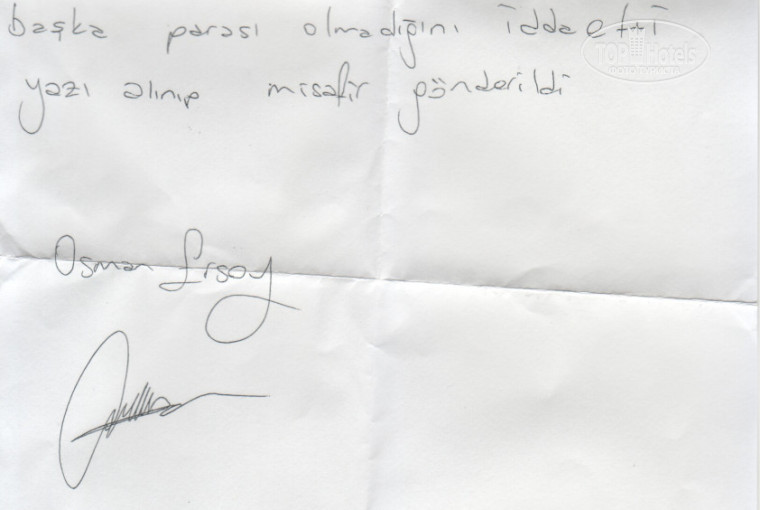 başka parası olmadığını iddaetti
TOP Hotels
yazı alınıp misafir gönderildi
Osman Ersoy